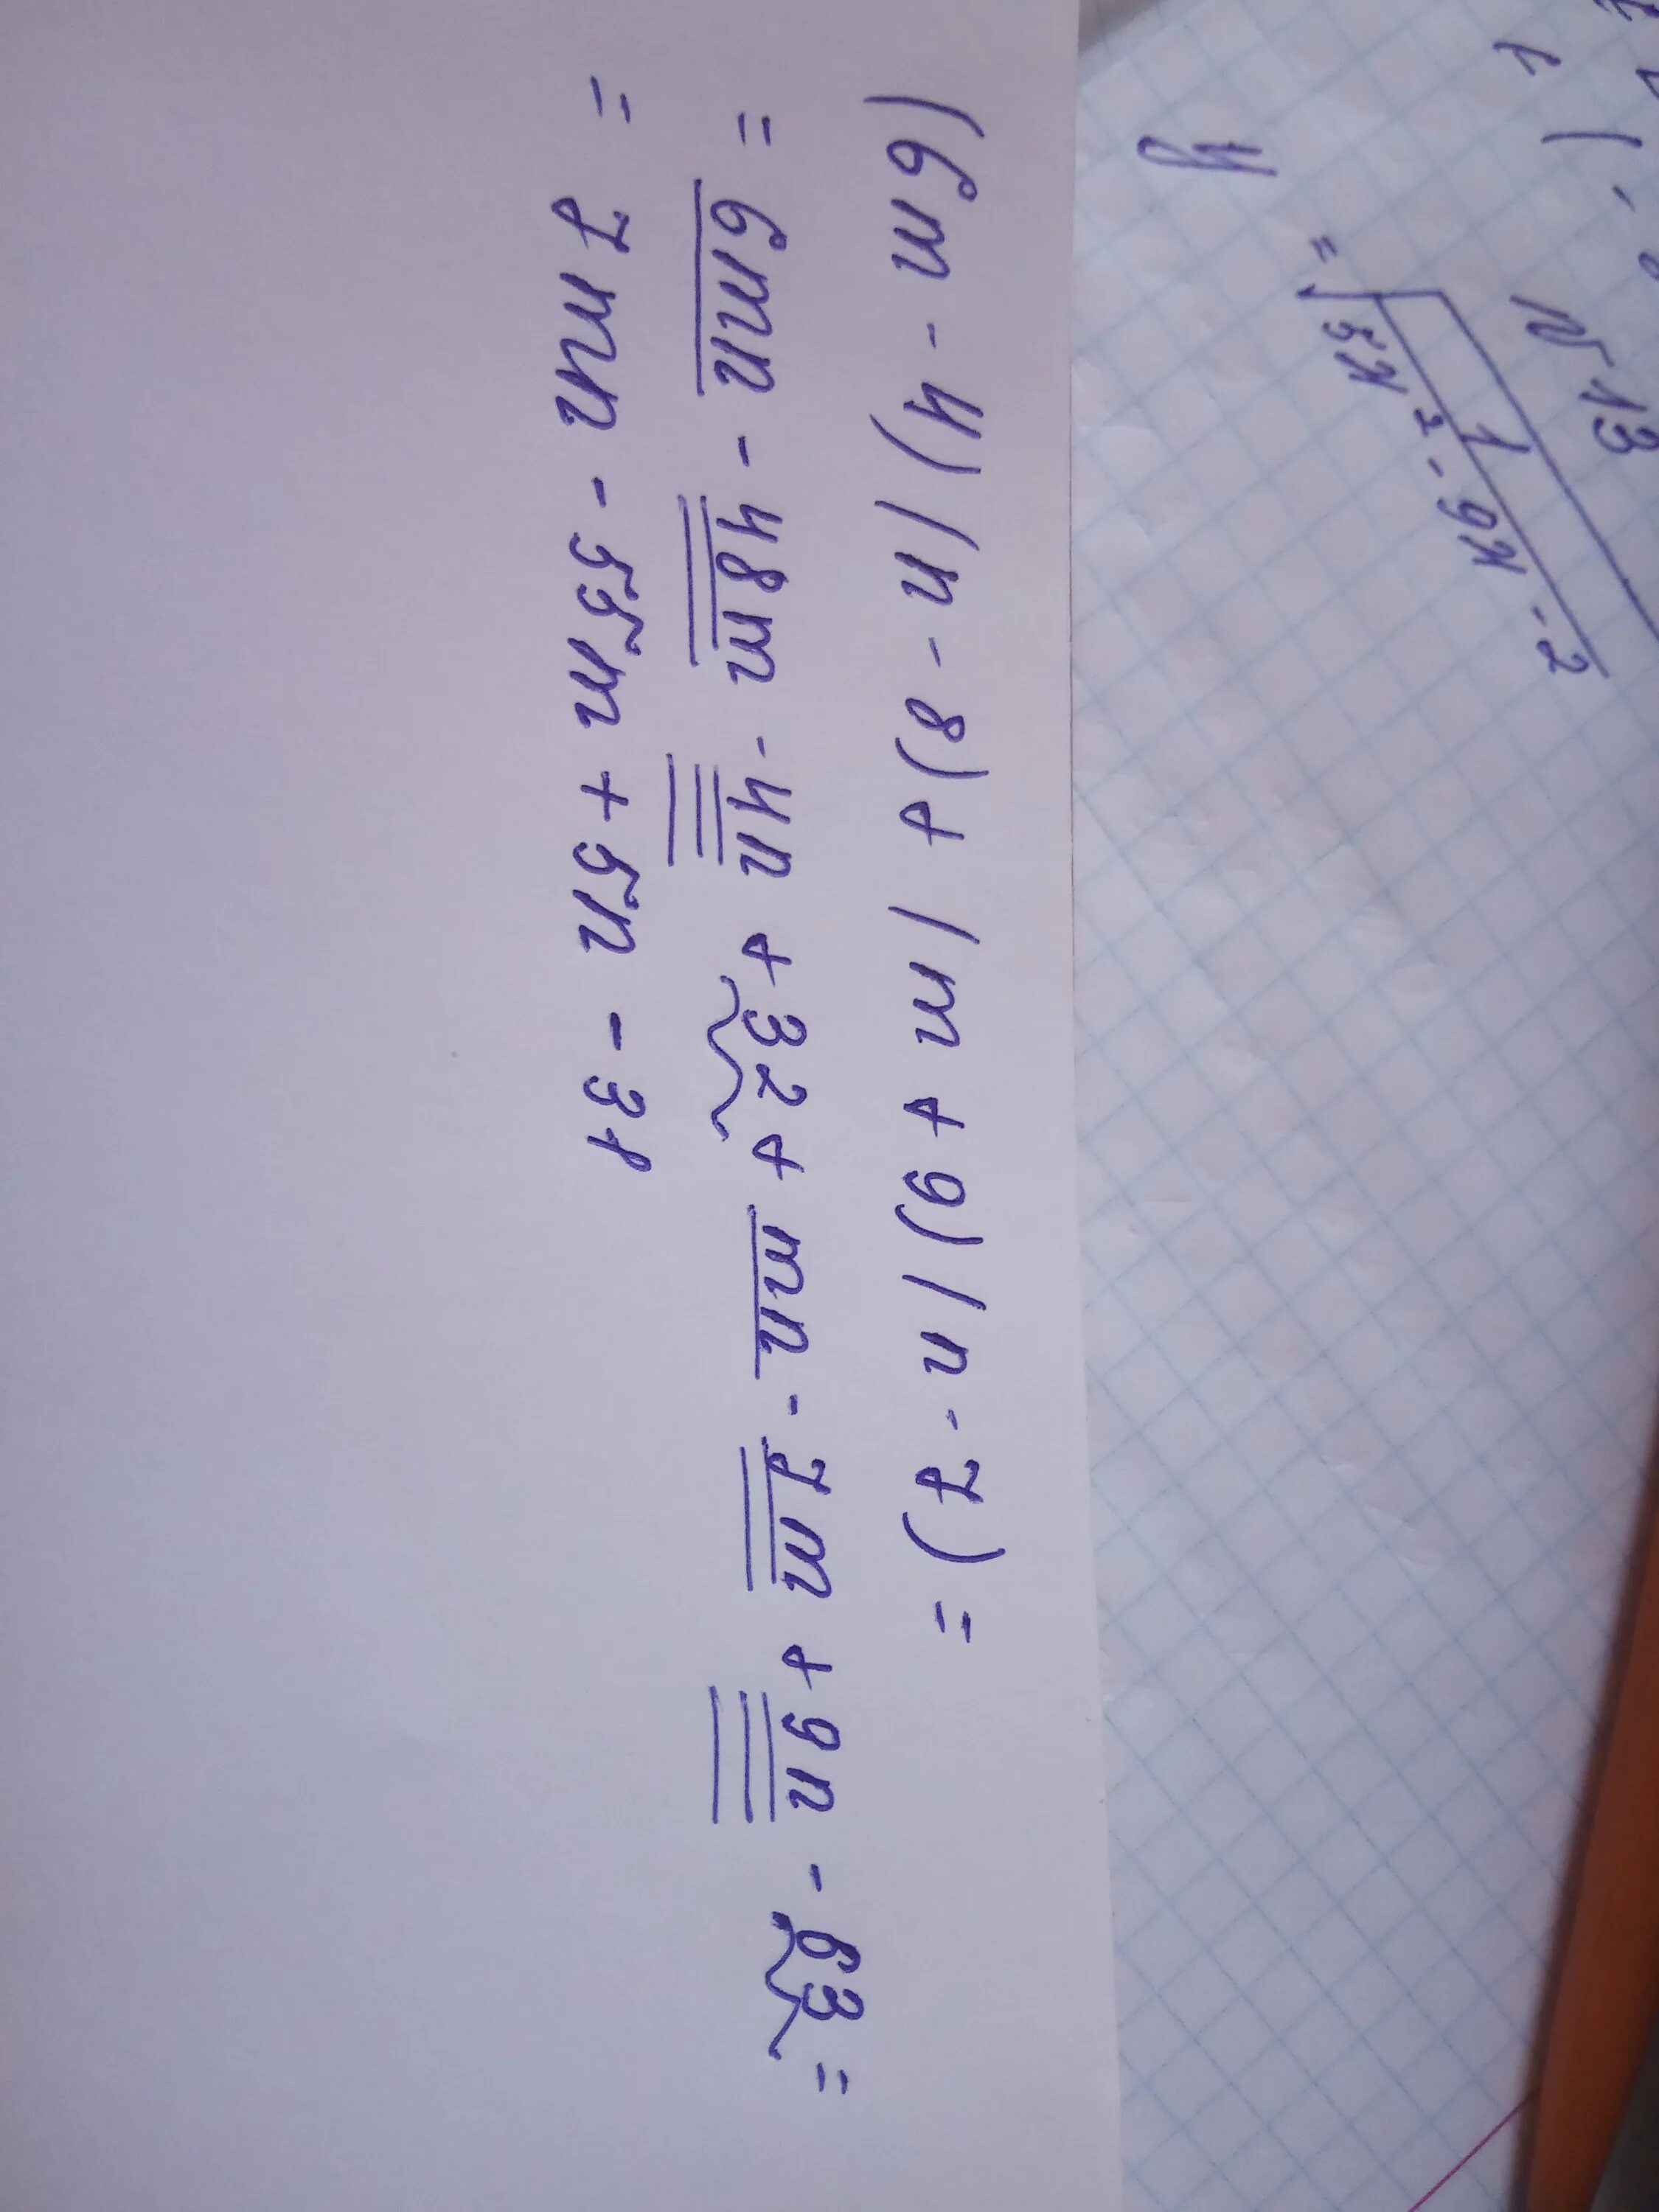 N 13
y = √ 1 / 5x² - 9x - 2
(6m - 4)(n - 8) + (m + 9)(n - 7) =
= 6mn - 48m - 4n + 32 + mn - 7m + 9n - 63 =
= 7mn - 55m + 5n - 31